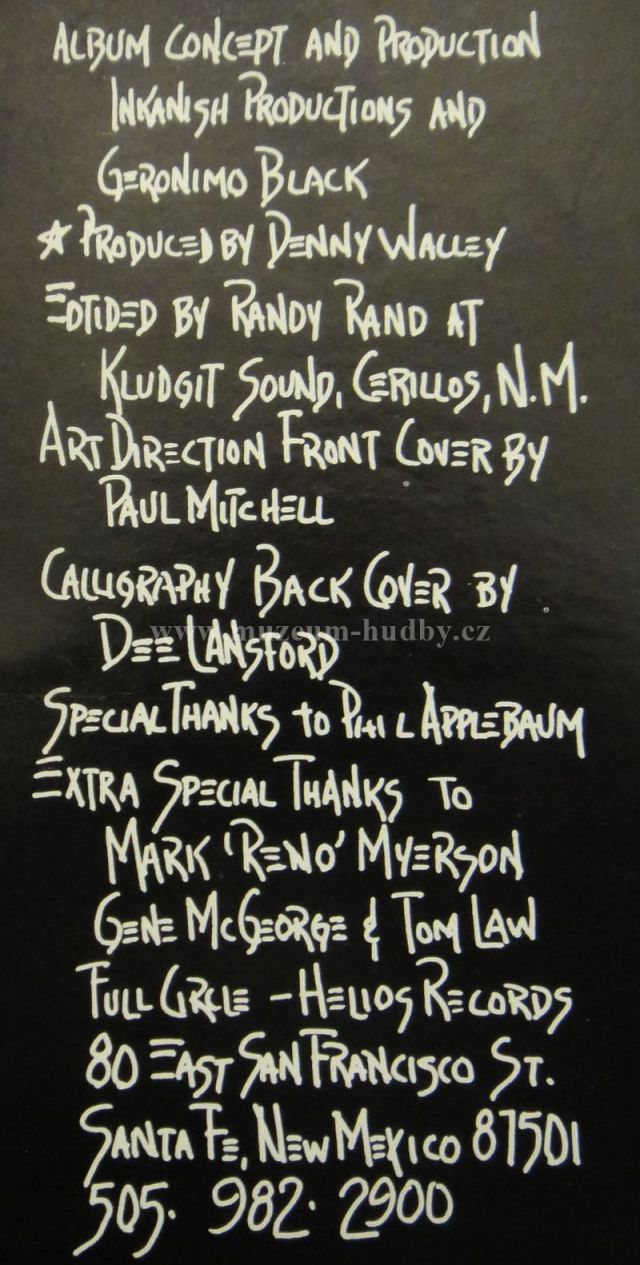 Album Concept and Production
Inkanish Productions and
Geronimo Black
* Produced by Denny Walley
Edtided by Randy Rand at
Kludgit Sound, Cerillos, N.M.
Art Direction Front Cover by
Paul Mitchell
Calligraphy Back Cover by
www.muzeum-hudby.cz
Dee Lansford
Special Thanks to Phil Applebaum
Extra Special Thanks to
Mark 'Reno' Myerson
Gene McGeorge & Tom Law
Full Circle - Helios Records
80 East San Francisco St.
Santa Fe, New Mexico 87501
505. 982. 2900